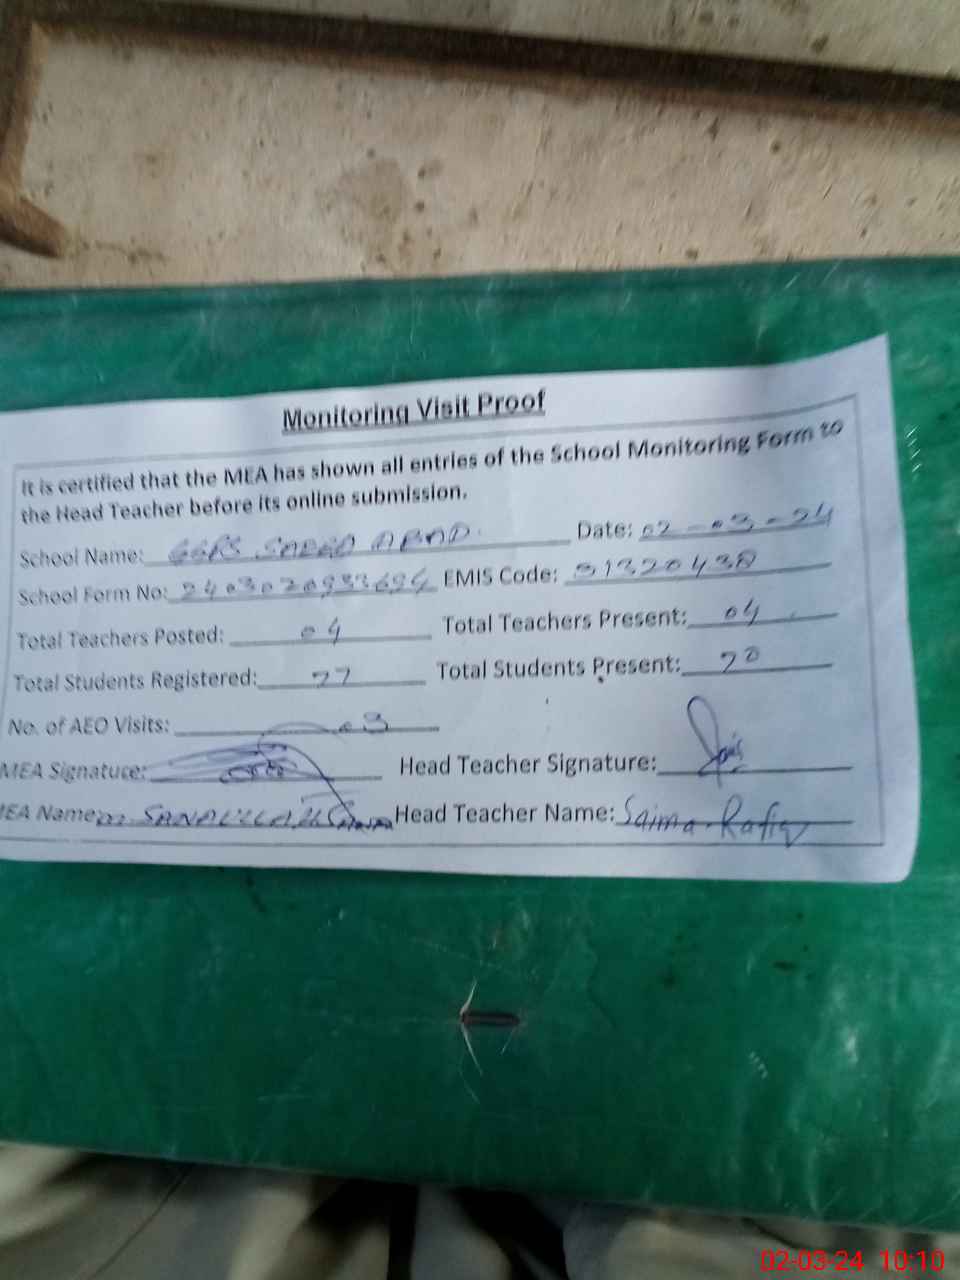 Monitoring Visit Proof
It is certified that the MEA has shown all entries of the School Monitoring Form to
the Head Teacher before its online submission.
School Name: GGPS SAEED ABAD. Date: 02-03-24
School Form No: EMIS Code: 31320438
Total Teachers Posted: 04 Total Teachers Present: 04
Total Students Registered: 77 Total Students Present: 70
No. of AEO Visits: 03
MEA Signature: Head Teacher Signature:
MEA Name: M. SANAULLAH Head Teacher Name: Saima Rafiq
02-03-24 10:10